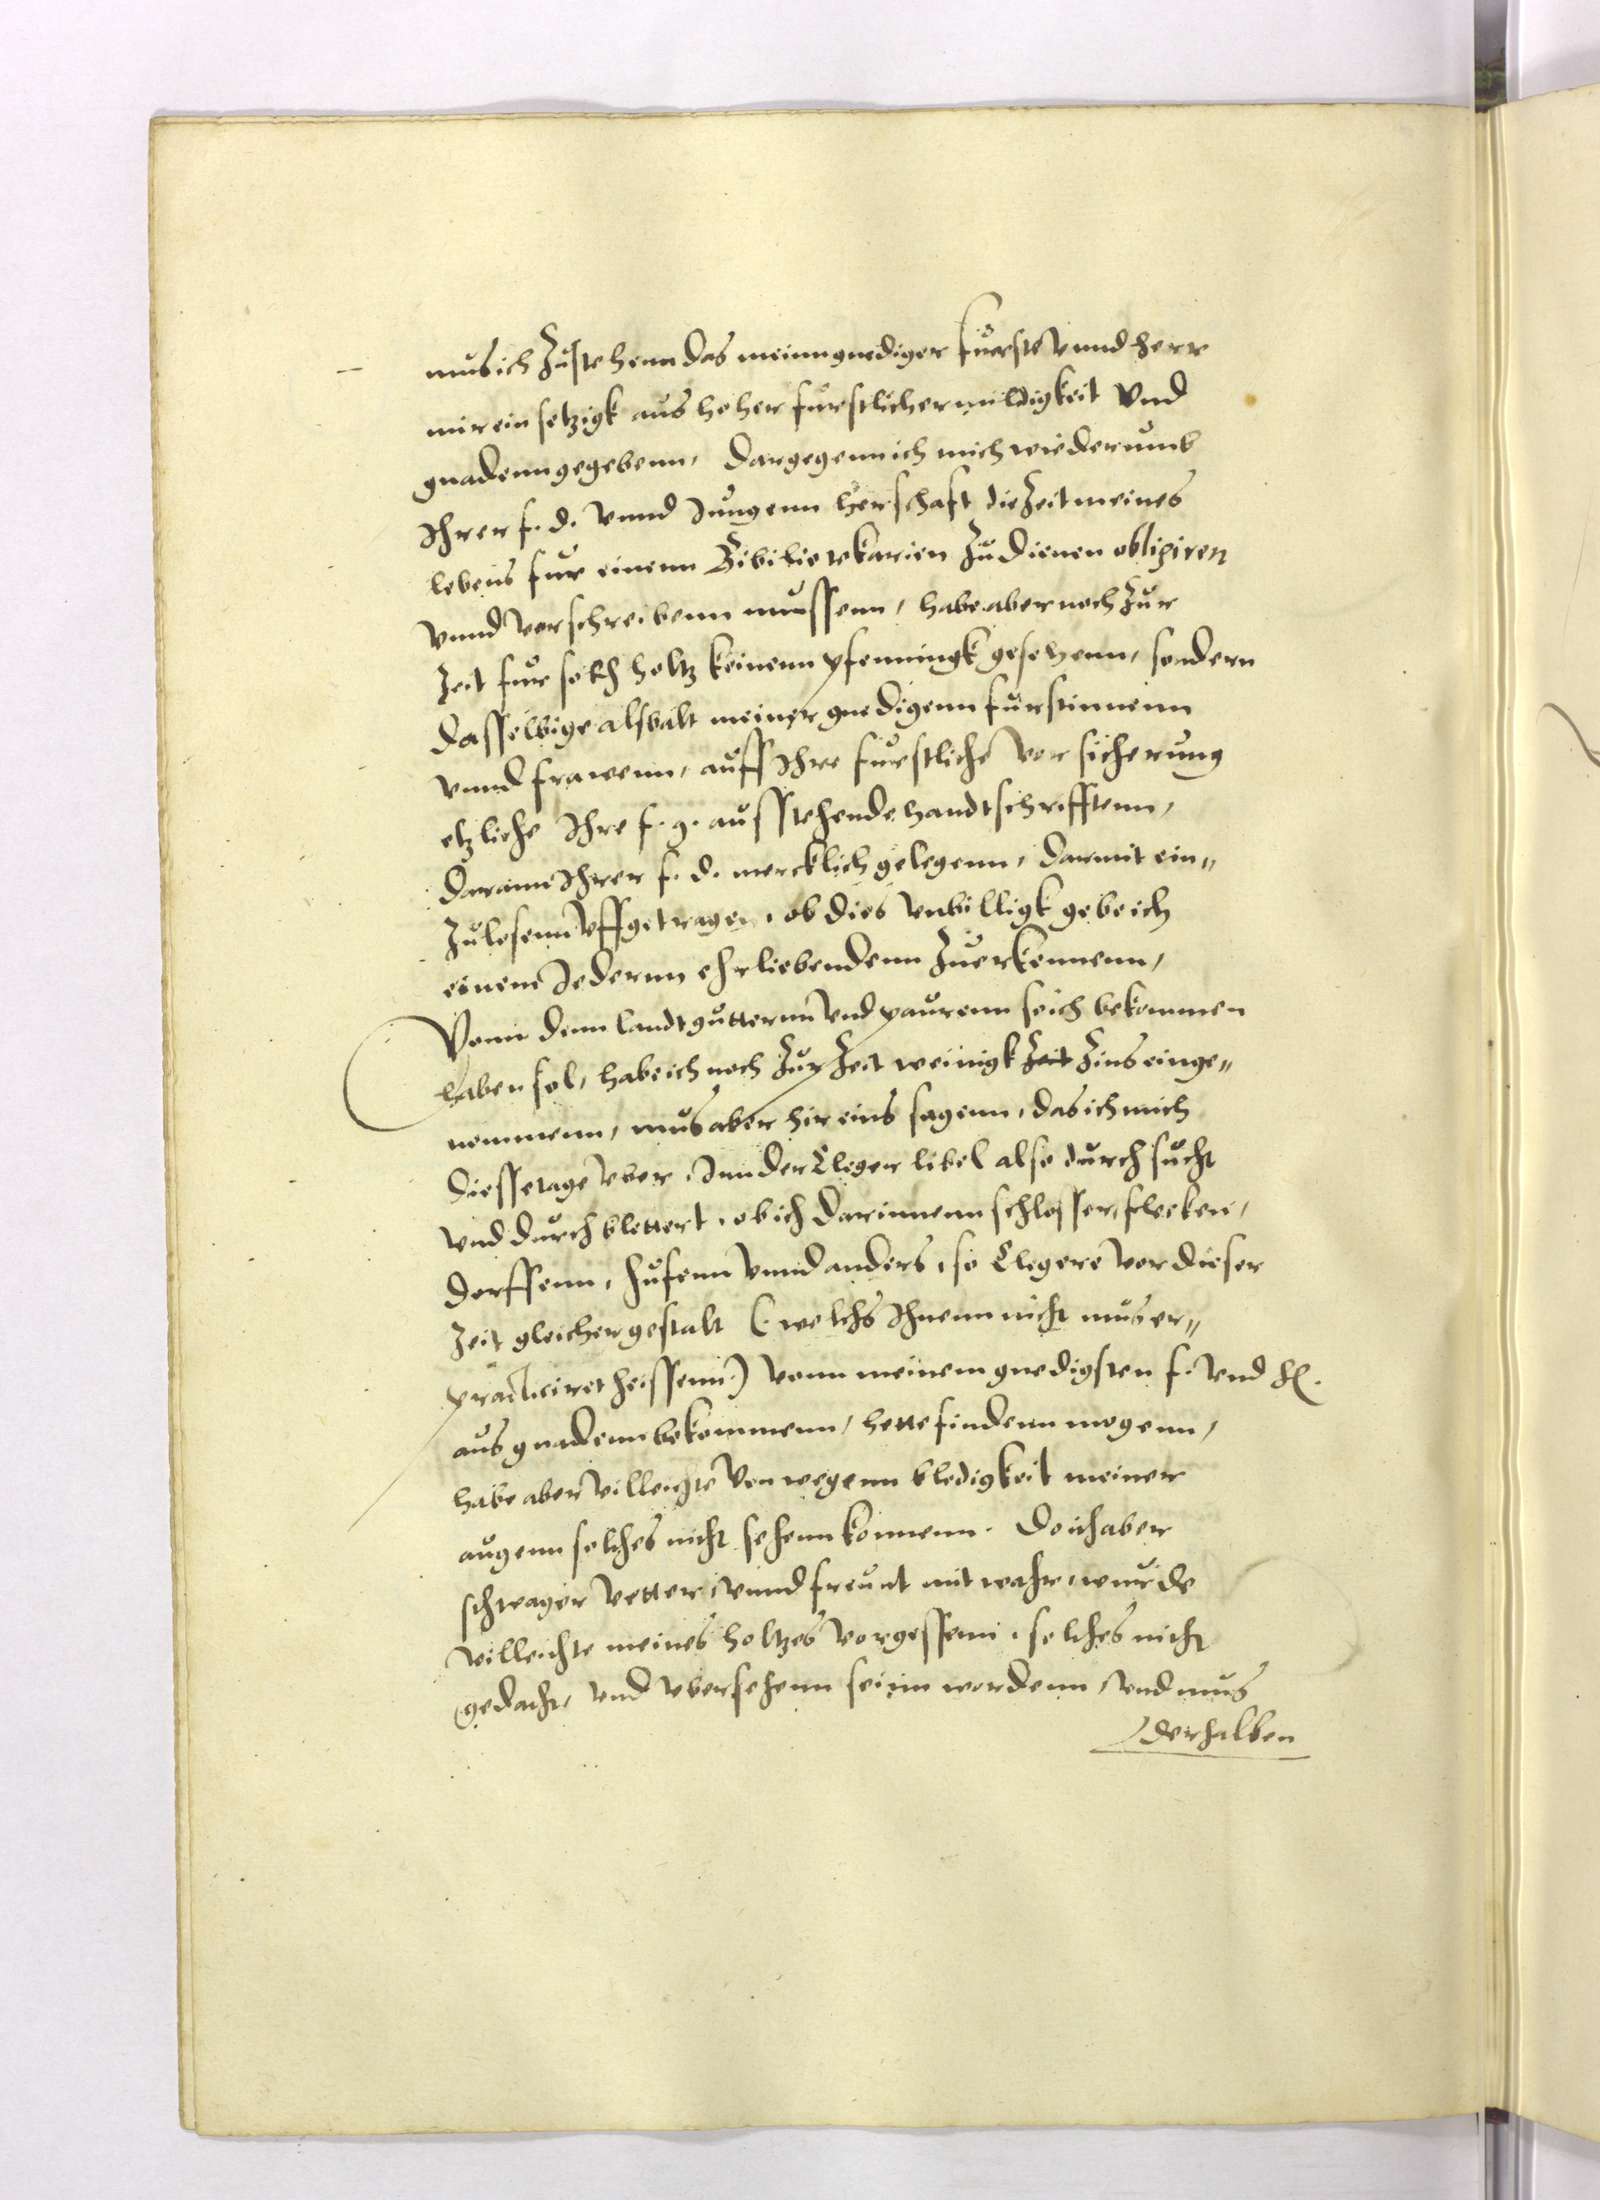 mus ich zustehenn das mein gnediger furste vnnd herr
mir ein setzigk aus hoher furstlicher mildigkeit vnd
gnadenn gegebenn, dargegenn ich mich wiederumb
Ihrer f. d. vnnd Jungenn herschaft die Zeit meines
lebens fur einenn Bibiliotekarien zu dienen obligiren
vnnd vorschreibenn mussenn, habe aber noch zur
Zeit fur solch holtz keinenn pfenningk gesehenn, sondern
dasselbige alsbalt meiner gnedigenn furstinnenn
vnnd frawenn, auff Ihre furstliche vorsicherung
etzliche Ihre f. g. ausstehende handtschrifftenn,
darann Ihrer f. d. mercklich gelegenn, darmit ein„
zulosenn vffgetragen, ob dies vnbilligk gebe ich
einem Jedernn ehrliebendenn zuerkennenn,
Vonn denn landtgutternn vnd paurenn so ich bekommen
haben sol, habe ich noch zur Zeit weinigk Zeit Zins einge„
nommenn, mus aber hir eins sagenn, das ich mich
diesse tage vber Inn der Cleger libel also durchsucht
vnd durchblettert, ob ich darinnenn schlosser, flecken,
dorffenn, hufenn vnnd anders, so Clegere vor dieser
Zeit gleicher gestalt (: welchs Ihnenn nicht mus er„
practiciret heissenn:) vonn meinem gnedigsten f. vnd h.
aus gnadenn bekommenn, hette findenn mogenn,
habe aber villeichte von wegenn bledigkeit meiner
augenn solches nicht sehenn konnenn. Do ich aber
schwager vetter, vnnd freunt mit wahr, wurde
villeichte meines holtzes vorgessenn, solches nicht
gedacht, vnd vbersehenn seinn wordenn, vnd mus
derhalben